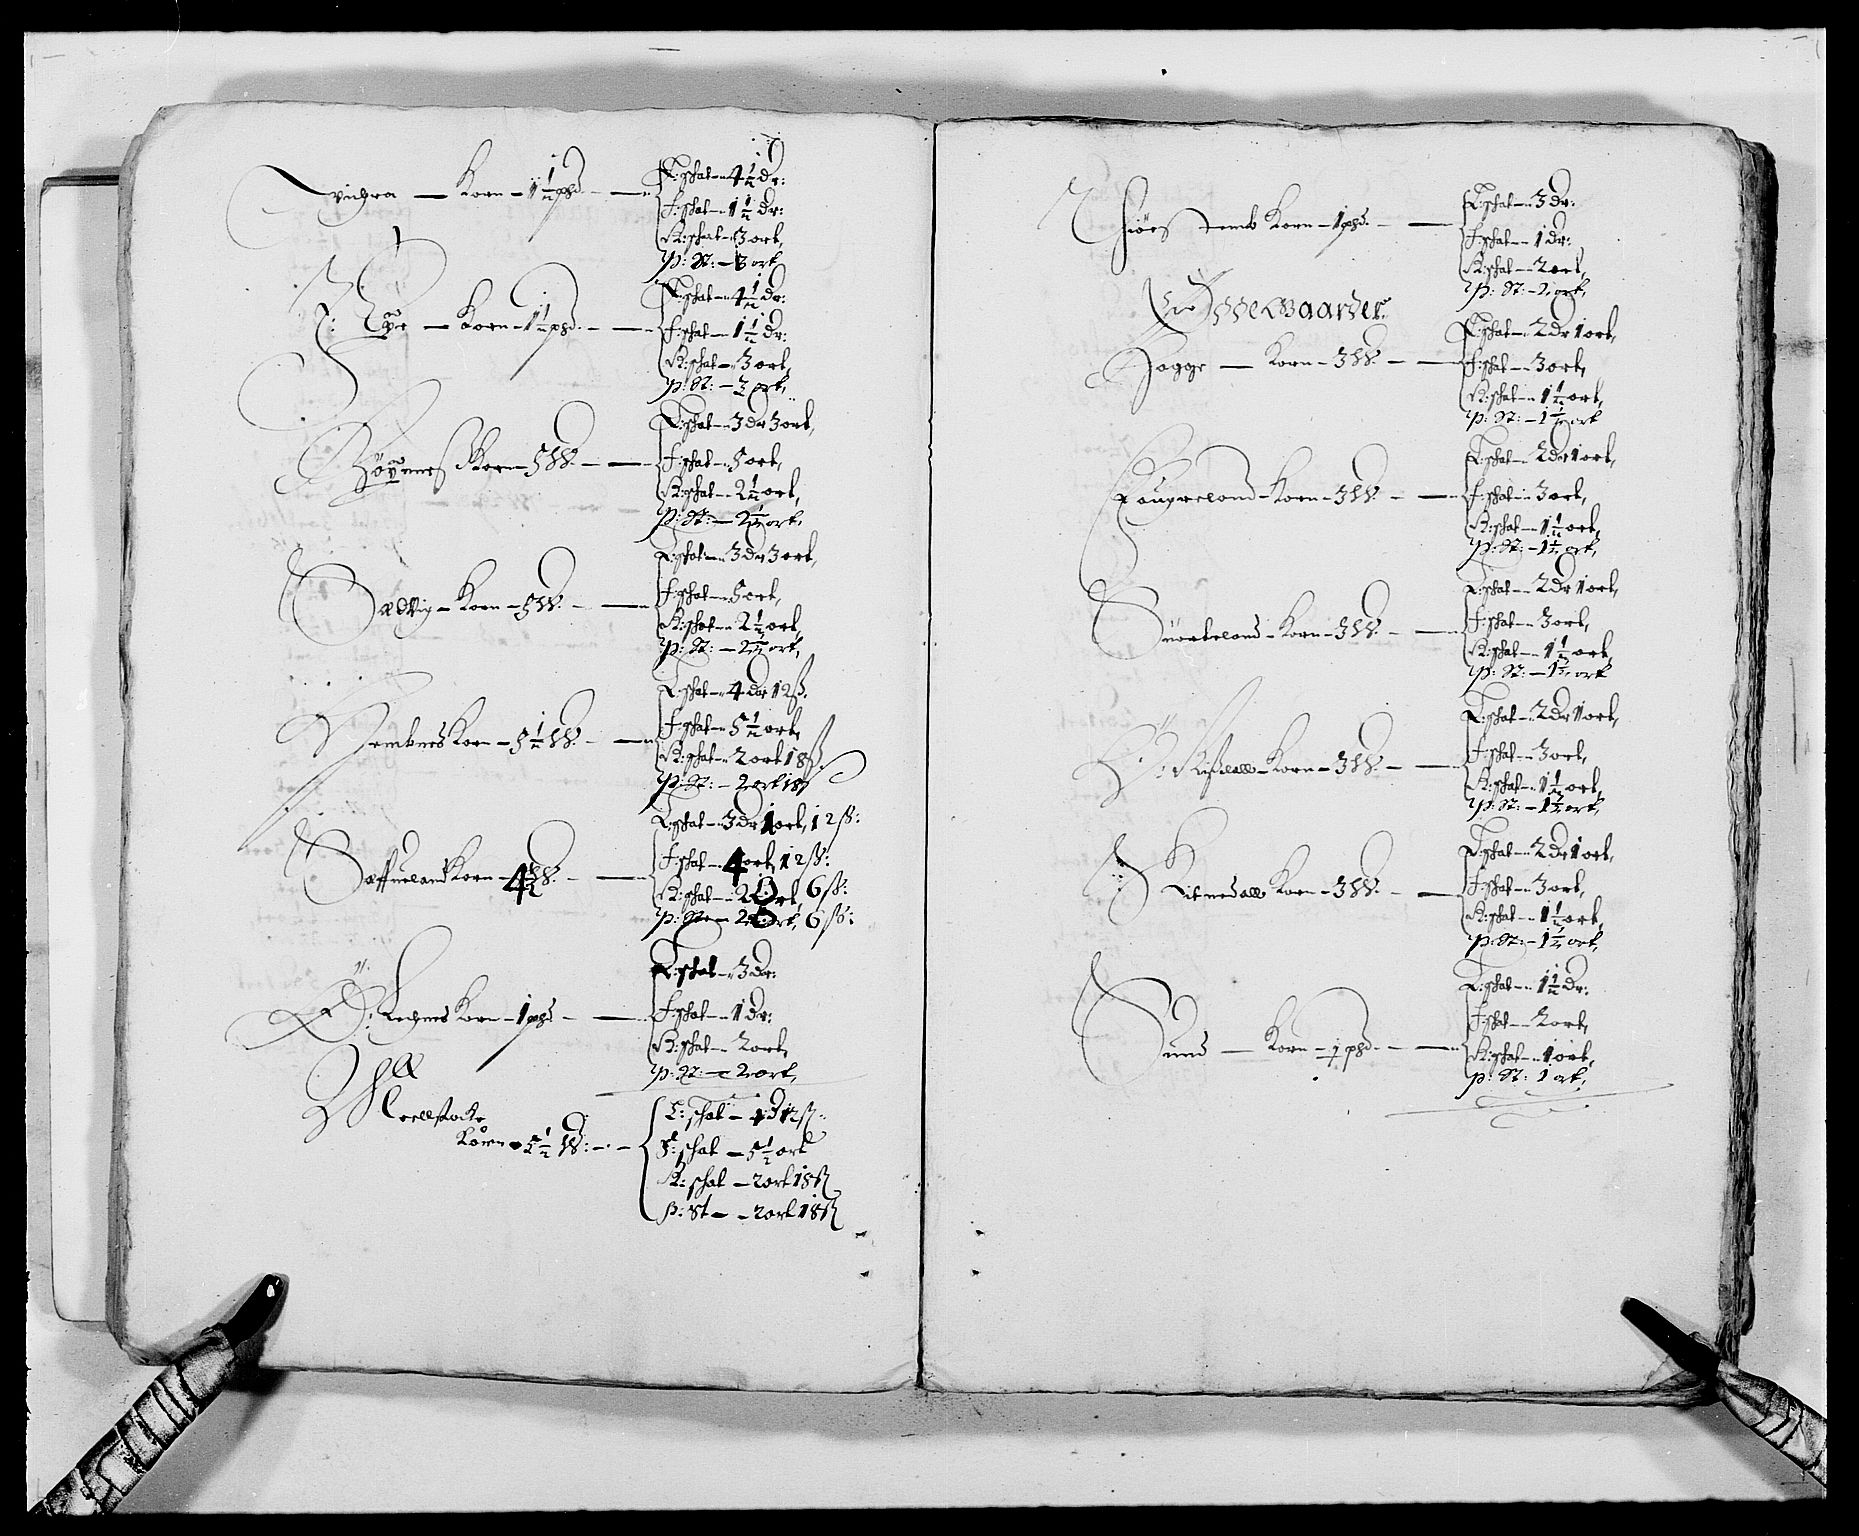 Korn – 1½ psd. –
L: schat – 4½ dr:
F: schat – 1½ dr:
K: schat – 3 ort,
P: St: – 3 ort
Korn – 1½ psd. –
L: schat – 4½ dr:
F: schat – 1½ dr:
K: schat – 3 ort,
P: St: – 3 ort,
Korn – 5 W. –
L: schat – 3 dr 3 ort,
F: schat – 5 ort,
K: schat – 2½ ort,
P: St: – 2½ ort,
Sædvig – Korn – 5 W. –
L: schat – 3 dr 3 ort,
F: schat – 5 ort,
K: schat – 2½ ort,
P: St: – 2½ ort,
Korn – 5½ W. –
L: schat – 4 dr 12 ß.
F: schat – 5½ ort,
K: schat – 2 ort 18 ß,
P: St: – 2 ort 18 ß
Korn – 4½ W. –
L: schat – 3 dr 1 ort, 12 ß:
F: schat – 4 ort 12 ß:
K: schat – 2 ort, 6 ß:
P: St – 2 ort, 6 ß:
Korn – 1 psd –
L: schat – 3 dr:
F: schat – 1 dr:
K: schat – 2 ort,
P: St: – 2 ort,
Korn – 5½ W: –
L: schat – 4 D 12 ß:
F: schat – 5½ ort
K: schat – 2 ort 18 ß
P: St – 2 ort 18 ß
Korn – 1 psd. –
L: schat – 3 dr:
F: schat – 1 dr:
K: schat – 2 ort,
P: St: – 2 ort,
Ødegaarder
Hogge – Korn – 3 W. –
L: schat – 2 dr 1 ort,
F: schat – 3 ort,
K: schat – 1½ ort,
P: St: – 1½ ort
Korn – 3 W. –
L: schat – 2 dr 1 ort,
F: schat – 3 ort,
K: schat – 1½ ort,
P: St: – 1½ ort,
Korn – 3 W. –
L: schat – 2 dr 1 ort,
F: schat – 3 ort,
K: schat – 1½ ort,
P: St: – 1½ ort
Korn – 3 W. –
L: schat – 2 dr 1 ort,
F: schat – 3 ort,
K: schat – 1½ ort,
P: St: – 1½ ort,
Korn – 3 W. –
L: schat – 2 dr 1 ort,
F: schat – 3 ort,
K: schat – 1½ ort,
P: St: – 1½ ort,
Sund – Korn – ½ psd. –
L: schat – 1½ dr:
F: schat – 2 ort,
K: schat – 1 ort,
P: St: 1 ort,